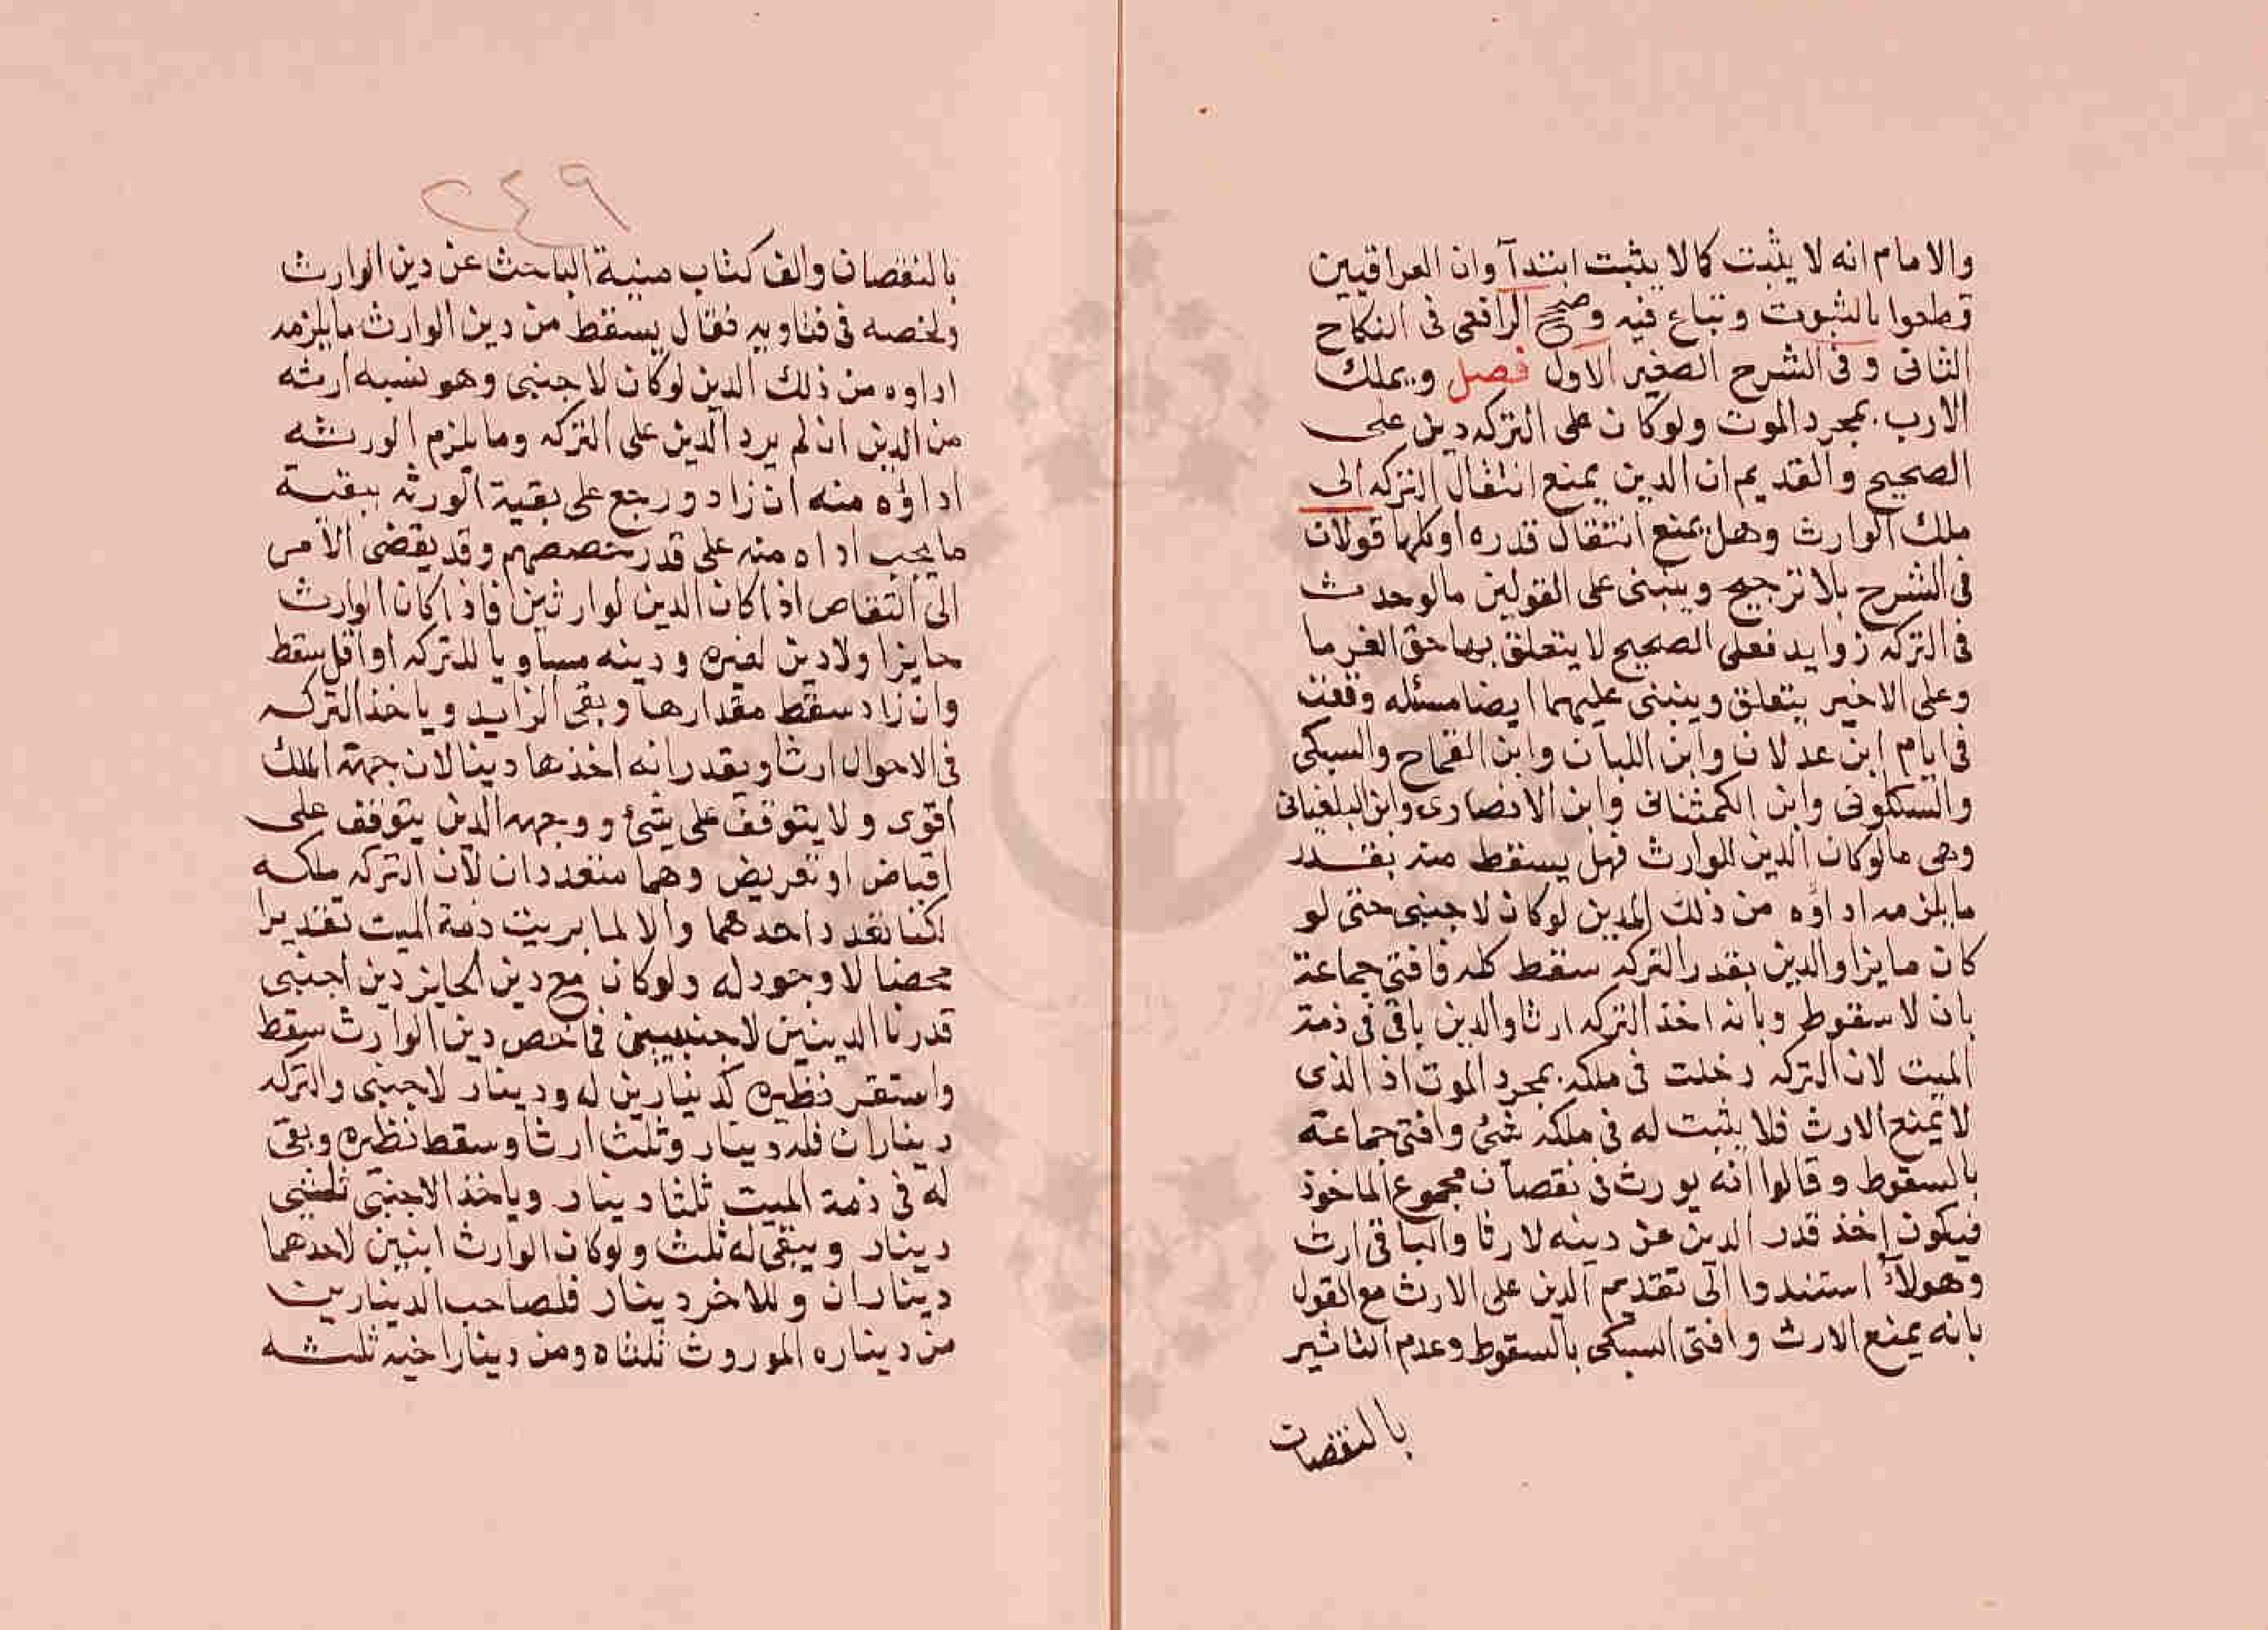 والامام انه لا يثبت كما لا يثبت ابتدآ وان العراقيين
قطعوا بالثبوت وتباع فيه وصحح الرافعى فى النكاح
الثانى وفى الشرح الصغير الاول فصل ويملك
الارث بمجرد الموت ولو كان على التركه دين على
الصحيح والقديم ان الدين يمنع انتقال التركه الى
ملك الوارث وهل يمنع انتقال قدره او كلها قولان
فى الشرح بلا ترجيح وينبنى على القولين ما لو حدث
فى التركه زوايد فعلى الصحيح لا يتعلق بها حق الغرما
وعلى الاخير يتعلق وينبنى عليهما ايضا مسئله وقعت
فى ايام ابن عدلان وابن اللبان وابن القماح والسبكى
والسنكلونى وابن الكمثنانى وابن الانصارى وابن البلفيانى
وهى ما لو كان الدين للوارث فهل يسقط منه بقدر
ما يلزمه اداؤه من ذلك الدين لو كان لاجنبى حتى لو
كان حايزا والدين بقدر التركه سقط كله فافتى جماعة
بان لا سقوط وبانه اخذ التركه ارثا والدين باقى فى ذمة
الميت لان التركه دخلت فى ملكه بمجرد الموت اذ الذى
لا يمنع الارث فلا يثبت له فى ملكه شئ وافتى جماعة
بالسقوط وقالوا انه يورث فى نقصان مجموع الماخوذ
فيكون اخذ قدر الدين عن دينه لا رثا والباقى ارث
وهولآء استندوا الى تقديم الدين على الارث مع القول
بانه يمنع الارث وافتى السبكى بالسقوط وعدم التاثير
بالنقصان
٢٤٩
بالنقصان والف كتاب منية الباحث عن دين الوارث
ولخصه فى فتاويه فقال يسقط من دين الوارث ما يلزمه
اداوه من ذلك الدين لو كان لاجنبى وهو نسبه ارثه
من الدين ان لم يرد الدين على التركه وما يلزم الورثه
اداؤه منه ان زاد ورجع على بقية الورثه ببقية
ما يجب اداه منه على قدر حصصهم وقد يقضى الامر
الى التقاص اذا كان الدين لوارثين فاذا كان الوارث
حايزا ولا دين لغيره ودينه مساويا للتركه او اقل سقط
وان زاد سقط مقدارها وبقى الزايد وياخذ التركه
فى الاحوال ارثا ويقدر انه اخذها دينا لان جهة الملك
اقوى ولا يتوقف على شئ ووجهه الدين يتوقف على
اقباض او تعريض وهما متعددان لان التركه ملكه
لكنا نقدر احدهما والا لما بريت ذمة الميت تقديرا
محضا لا وجود له ولو كان مع دين الحايز دين اجنبى
قدرنا الدينين لاجنبيين فما خص دين الوارث سقط
واستقر نظيره كدينارين له ودينار لاجنبى والتركه
ديناران فله دينار وثلث ارثا وسقط نظيره وبقى
له فى ذمة الميت ثلثا دينار وياخذ الاجنبى ثلثى
دينار ويبقى له ثلث ولو كان الوارث ابنين لاحدهما
ديناران وللاخر دينار فلصاحب الدينارين
من ديناره الموروث ثلثاه ومن دينار اخيه ثلثه